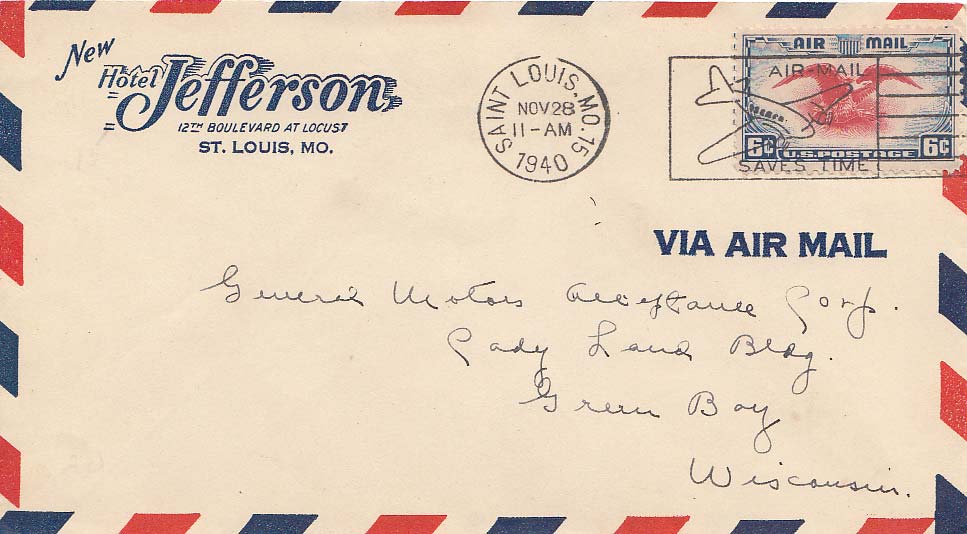 New
Hotel Jefferson
12TH BOULEVARD AT LOCUST
ST. LOUIS, MO.
SAINT LOUIS, MO. 15
NOV 28
11-AM
1940
AIR MAIL
AIR MAIL
SAVES TIME
6¢ U.S. POSTAGE 6¢
VIA AIR MAIL
General Motors Acceptance Corp.
Cady Land Bldg.
Green Bay
Wisconsin.